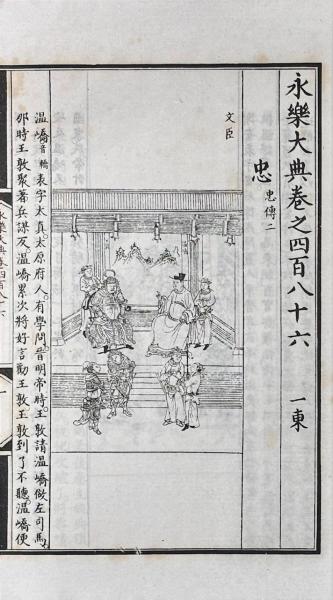 永樂大典卷之四百八十六 一東
忠 忠傳二
文臣
温嶠音轎表字太真太原府人有學問晉明帝時王敦請温嶠做左司馬
那時王敦聚著兵謀反温嶠累次將好言勸王敦王敦到了不聽温嶠便
永樂大典卷四百八十六